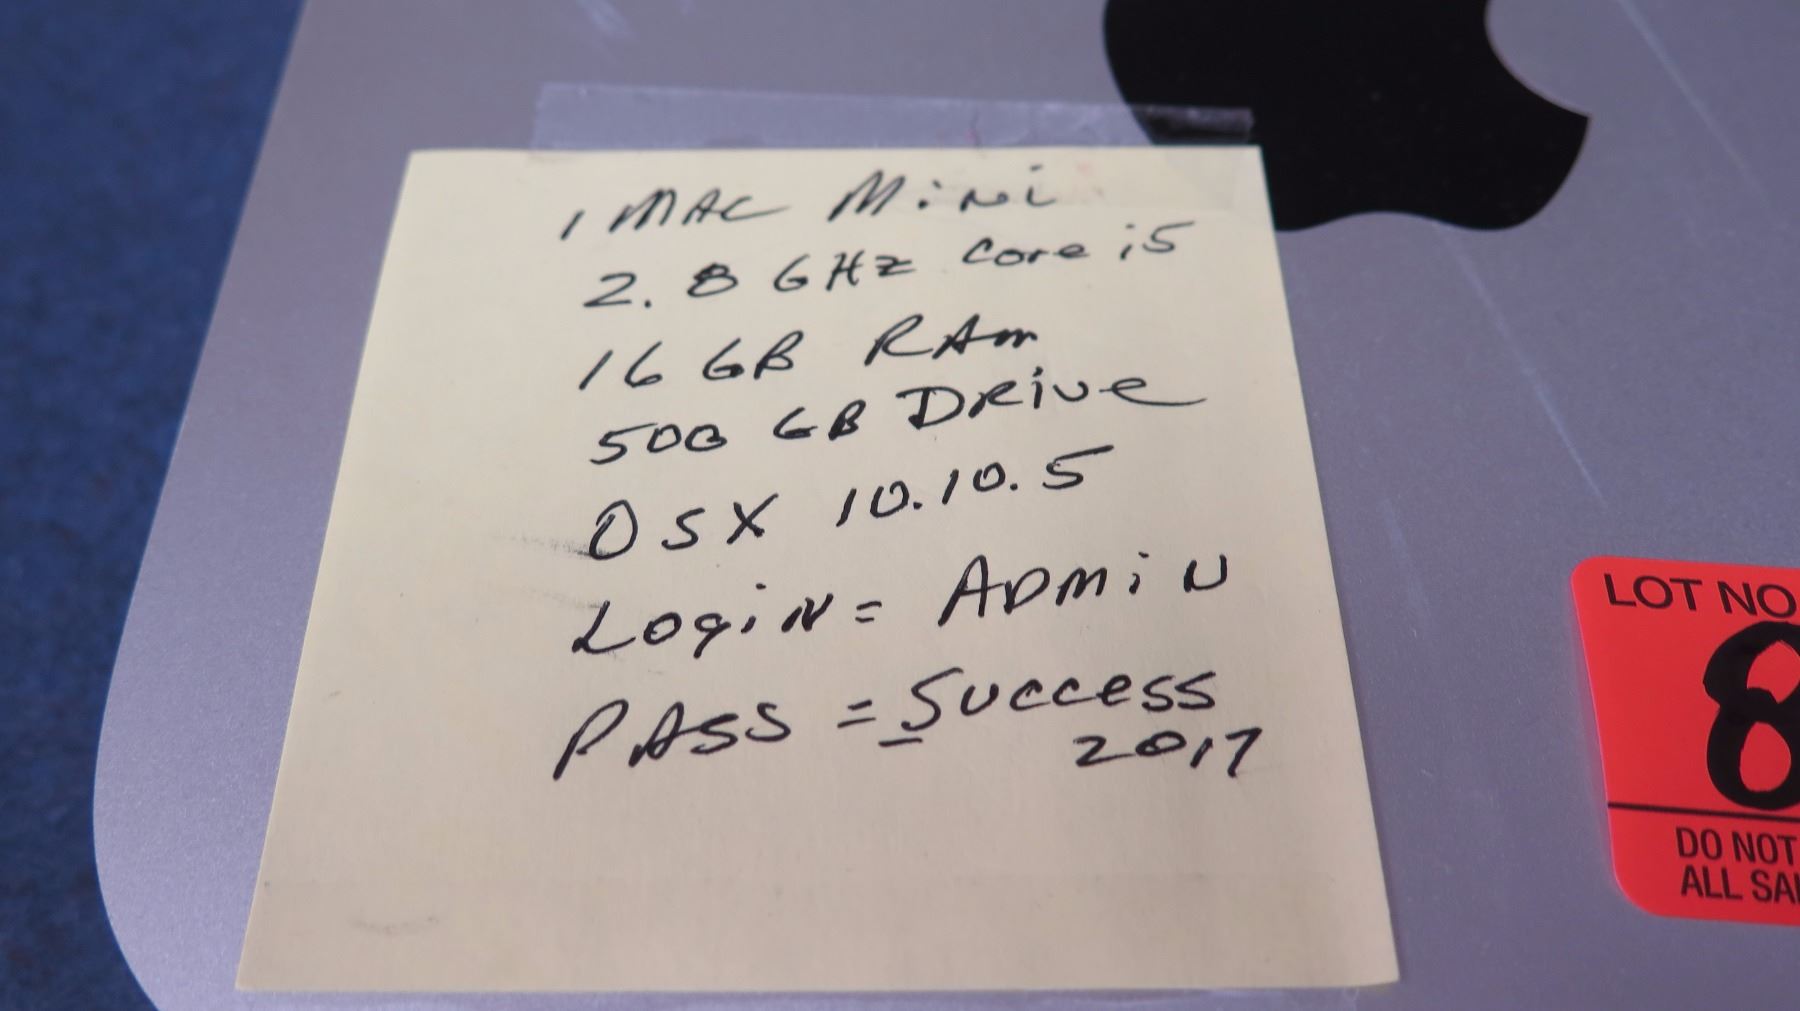 1 MAC Mini
2.8 GHz Core i5
16 GB RAM
500 GB DRive
OSX 10.10.5
LogiN= ADMiN
PASS = Success
2017
LOT NO
8
DO NOT
ALL